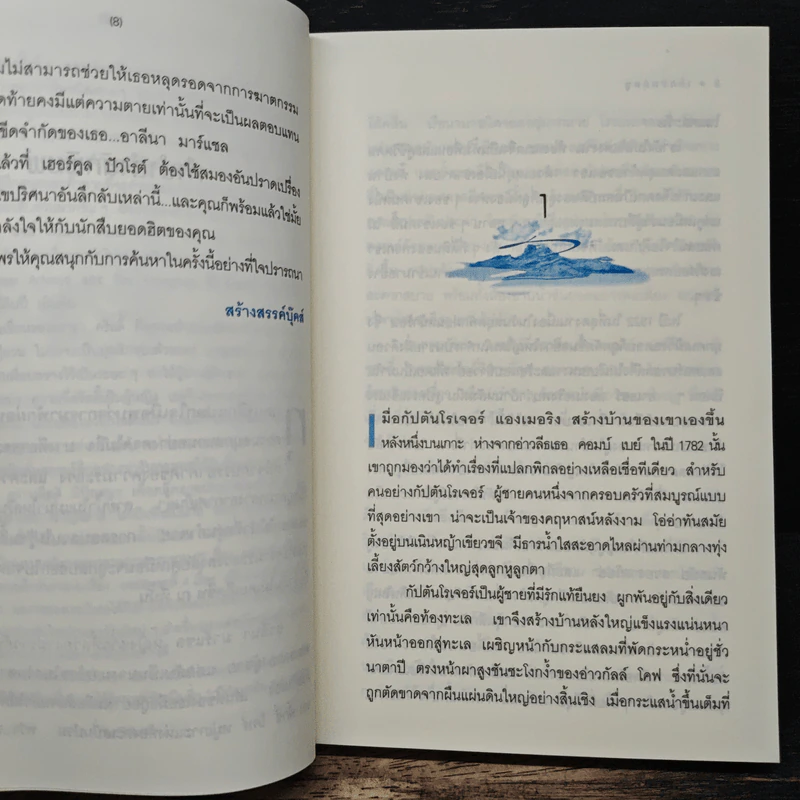 (8)
ไม่สามารถช่วยให้เธอหลุดรอดจากการฆาตกรรม
ท้ายคงมีแต่ความตายเท่านั้นที่จะเป็นผลตอบแทน
ขีดจำกัดของเธอ...อาลีนา มาร์แชล
ล้วที่ เฮอร์คูล ปัวโรต์ ต้องใช้สมองอันปราดเปรื่อง
ขปริศนาอันลึกลับเหล่านี้...และคุณก็พร้อมแล้วใช่มั้ย
ลังใจให้กับนักสืบยอดฮิตของคุณ
พรให้คุณสนุกกับการค้นหาในครั้งนี้อย่างที่ใจปรารถนา
สร้างสรรค์บุ๊คส์
1
เมื่อกัปตันโรเจอร์ แองเมอริง สร้างบ้านของเขาเองขึ้น
หลังหนึ่งบนเกาะ ห่างจากอ่าวลีธเธอ คอมบ์ เบย์ ในปี 1782 นั้น
เขาถูกมองว่าได้ทำเรื่องที่แปลกพิกลอย่างเหลือเชื่อทีเดียว สำหรับ
คนอย่างกัปตันโรเจอร์ ผู้ชายคนหนึ่งจากครอบครัวที่สมบูรณ์แบบ
ที่สุดอย่างเขา น่าจะเป็นเจ้าของคฤหาสน์หลังงาม โอ่อ่าทันสมัย
ตั้งอยู่บนเนินหญ้าเขียวขจี มีธารน้ำใสสะอาดไหลผ่านท่ามกลางทุ่ง
เลี้ยงสัตว์กว้างใหญ่สุดลูกหูลูกตา
กัปตันโรเจอร์เป็นผู้ชายที่มีรักแท้ยืนยง ผูกพันอยู่กับสิ่งเดียว
เท่านั้นคือท้องทะเล เขาจึงสร้างบ้านหลังใหญ่แข็งแรงแน่นหนา
หันหน้าออกสู่ทะเล เผชิญหน้ากับกระแสลมที่พัดกระหน่ำอยู่ชั่ว
นาตาปี ตรงหน้าผาสูงชันชะโงกง้ำของอ่าวกัลล์ โคฟ ซึ่งที่นั่นจะ
ถูกตัดขาดจากผืนแผ่นดินใหญ่อย่างสิ้นเชิง เมื่อกระแสน้ำขึ้นเต็มที่